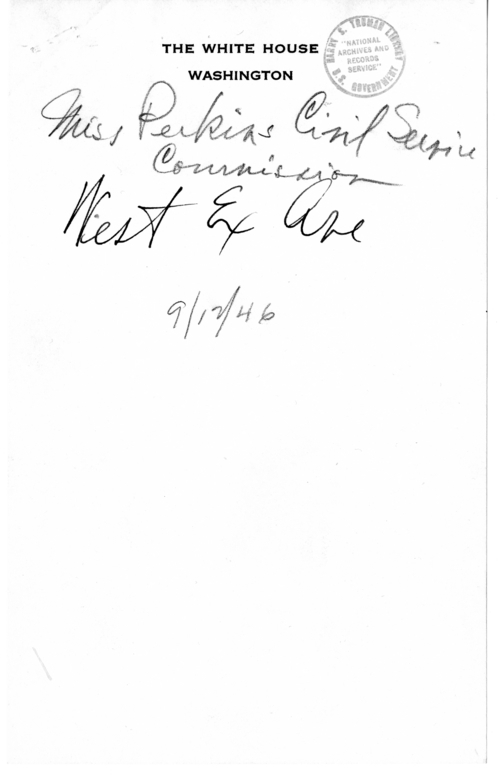 THE WHITE HOUSE
WASHINGTON
HARRY S. TRUMAN LIBRARY
"NATIONAL
ARCHIVES AND
RECORDS
SERVICE"
U.S. GOVERNMENT
Miss Perkins Civil Service
Commission
West Ex Ave
9/12/46